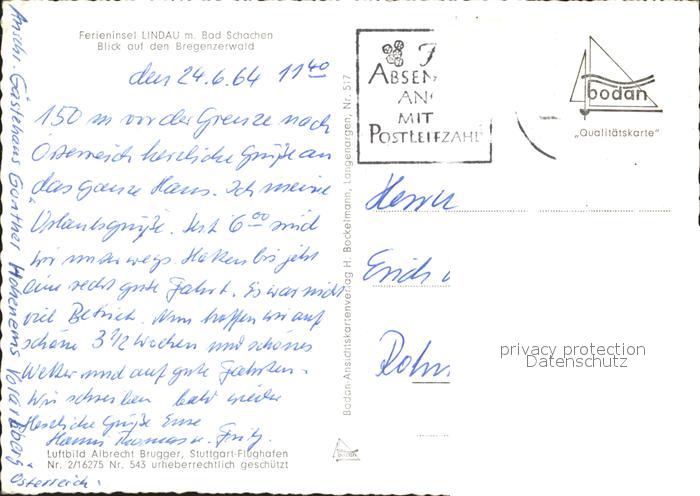 Ferieninsel LINDAU m. Bad Schachen
Blick auf den Bregenzerwald
den 24.6.64 11⁴⁰
150 m vor der Grenze nach
Österreich herzliche Grüße an
das ganze Haus. Ich meine
Urlaubsgrüße. Seit 6⁰⁰ sind
wir unterwegs. Hatten bis jetzt
eine recht gute Fahrt. Es war nicht
viel Betrieb. Nun hoffen wir auf
schöne 3 1/2 Wochen und schönes
Wetter und auf gute Fahrten.
Wir schreiben bald wieder
Herzliche Grüße Eure
Hanni Thomas u. Fritz.
Luftbild Albrecht Brugger, Stuttgart-Flughafen
Nr. 2/16275 Nr. 543 urheberrechtlich geschützt
Anschr. Gästehaus Günther Hohenems Vorarlberg
Österreich.
Bodan-Ansichtskartenverlag H. Bockelmann, Langenargen, Nr. 517
bodan
ABSEN
AN
MIT
POSTLEITZAHL
bodan
„Qualitätskarte"
Herrn
Erich
privacy protection
Datenschutz